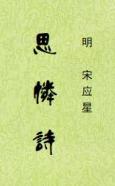 明 宋应星
思憐詩